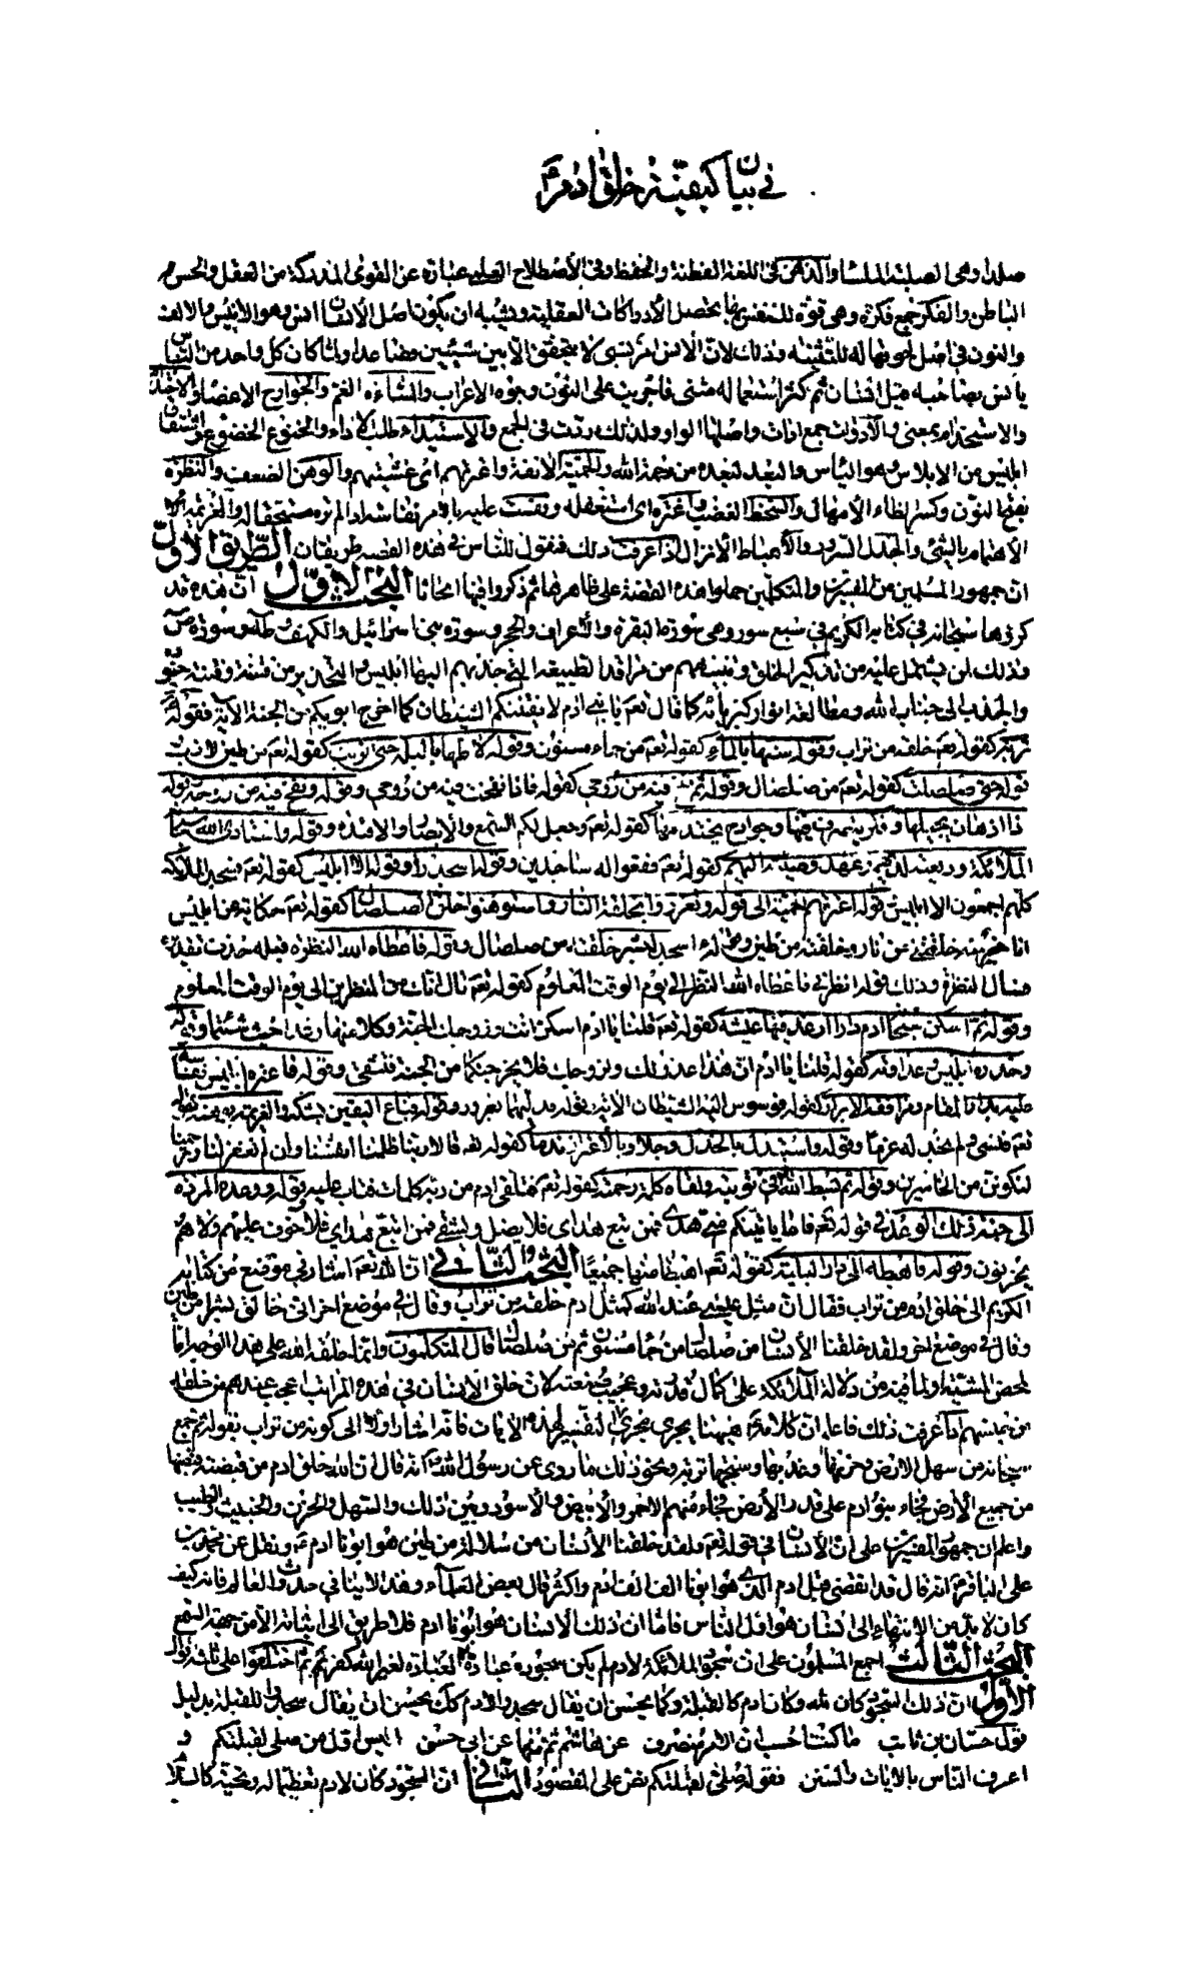 في بيان كيفية خلق ادم ع
صلدا وهى الصلبة الملساء والذهن في اللغة الفطنة والحفظ وفى الأصطلاح العلمى عبارة عن القوى المدركة من العقل والحس
الباطن والفكر جمع فكرة وهى قوة للنفس بها يحصل الأدراكات العقلية ويشبه ان يكون اصل الأنسان انس وهو الانيس والالف
والنون في اصل لحوقها له للتثنية وذلك لان الأنس امر نسبى لا يتحقق الا بين شيئين فصاعدا ولما كان كل واحد من الناس
يأنس بصاحبه قيل انسان ثم كثر استعماله مثنى فاجريت على النون وجوه الاعراب والمساءة الغم والجوارح الاعضاء والاختدام
والاستخدام بمعنى والأدوات جمع اداة واصلها الواو ولذلك ردت في الجمع والاستيداء طلب الاداء والخنوع الخضوع واشتقاق
ابليس من الابلاس وهو اليأس والبعد لبعده من رحمة الله والحمية الانفة واعترتهم اى غشيتهم والوهن الضعف والنظرة
بفتح النون وكسر الظاء الأمهال والسخط الغضب واغتره اى استغفله ونفست عليه بالامر نفاسة اذا لم تره مستحقا له والعزيمة
الأهتمام بالشئ والجذل السرور والأهباط الأنزال اذا عرفت ذلك فنقول للناس في هذه القصة طريقان الطريق الأول
ان جمهور المسلمين من المفسرين والمتكلمين حملوا هذه القصة على ظاهرها ثم ذكروا فيها ابحاثا البحث الاول ان هذه قد
كررها سبحانه في كتابه الكريم في سبع سور وهى سورة البقرة والأعراف والحجر وسورة بنى اسرائيل والكهف وطه وسورة ص
وذلك لمن يشتمل عليه من تذكير الخلق وتنبيههم من مراقد الطبيعة التي جذبهم اليها ابليس والتحذير من فتنته وفتنة جنوده
والجذب الى جناب الله ومطالعة انوار كبريائه كما قال تعم يا بنى ادم لا يفتننكم الشيطان كما اخرج ابويكم من الجنة الآية فقوله
تربة كقوله تعم خلقه من تراب وقوله سنها بالماء كقوله تعم من حماء مسنون وقوله لاطها بالبلة حتى لزبت كقوله تعم من طين لازب
قوله حتى صلصلت كقوله تعم من صلصال وقوله ثم نفخ فيه من روحى كقوله فاذا نفخت فيه من روحى وقوله ونفخ فيه من روحه وقوله
ذا اذهان يجيلها وفكر يتصرف فيها وجوارح يختدمها كقوله تعم وجعل لكم السمع والأبصار والافئدة وقوله واستأدى الله سبحانه
الملائكة وديعته لديهم وعهد وصيته اليهم كقوله تعم فقعوا له ساجدين وقوله اسجدوا وقوله الا ابليس كقوله تعم فسجد الملائكة
كلهم اجمعون الا ابليس قوله اعترتهم الحمية الى قوله وتعززوا بخلقة النار واستوهنوا خلق الصلصال كقوله تعم حكاية عن ابليس
انا خير منه خلقتنى من نار وخلقته من طين وقوله ءاسجد لبشر خلقته من صلصال وقوله فاعطاه الله النظرة
وذلك قوله انظرنى فاعطاه الله النظرة الى يوم الوقت المعلوم كقوله تعم قال انك من المنظرين الى يوم الوقت المعلوم
وقوله ثم اسكن سبحانه ادم دارا ارغد فيها عيشه كقوله تعم قلنا يا ادم اسكن انت وزوجك الجنة وكلا منها رغدا حيث شئتما وقوله
وحذره ابليس وعداوته كقوله قلنا يا ادم ان هذا عدو لك ولزوجك فلا يخرجنكما من الجنة فتشقى وقوله فاغتره ابليس نفاسة
عليه بدار المقام ومرافقة الابرار كقوله فوسوس اليه الشيطان الأية وقوله فدليهما بغرور وقوله فباع اليقين بشكه والعزيمة بوهنه كقوله
تعم فنسى ولم نجد له عزما وقوله واستبدل بالجذل وجلا وبالأغترار ندما كقوله تعم قالا ربنا ظلمنا انفسنا وان لم تغفر لنا وترحمنا
لنكونن من الخاسرين وقوله ثم بسط الله له في توبته ولقاه كلمة رحمته كقوله تعم فتلقى ادم من ربه كلمات فتاب عليه وقوله ووعده المرد
الى جنته وذلك الوعد في قوله تعم فاما يأتينكم منى هدى فمن تبع هداى فلا يضل ولا يشقى فمن اتبع هداى فلا خوف عليهم ولا هم
يحزنون وقوله فاهبطه الى دار البلية كقوله تعم اهبطا منها جميعا البحث الثاني ان الله تعم اشار في موضع من كتابه
الكريم الى خلق ادم من تراب فقال ان مثل عيسى عند الله كمثل ادم خلقه من تراب وقال في موضع اخر انى خالق بشرا من طين
وقال في موضع اخر ولقد خلقنا الأنسان من صلصال من حماء مسنون ثم من صلصال قال المتكلمون وانما خلقه الله على هذا الوجه اما
لمحض المشية او لما فيه من دلالة الملائكة على كمال قدرته وعجيب صنعته لان خلق الانسان في هذه المراتب اعجب عندهم من خلقه
من جنسهم اذا عرفت ذلك فاعلم ان كلامه ع هيهنا يجرى مجرى التفسير لهذه الايات فانه اشار اولا الى كونه من تراب بقوله ثم جمع
سبحانه من سهل الارض وحزنها وعذبها وسبخها تربة ونحو ذلك ما روى عن رسول الله ص انه قال ان الله خلق ادم من قبضة قبضها
من جميع الأرض فجاء بنو ادم على قدر الأرض فجاء منهم الاحمر والأبيض والأسود وبين ذلك والسهل والحزن والخبيث والطيب
واعلم ان جمهور المفسرين على ان الأنسان في قوله تعم ولقد خلقنا الأنسان من سلالة من طين هو ابونا ادم ع ونقل عن محمد بن
على الباقر ع انه قال قد انقضى قبل ادم الذي هو ابونا الف الف ادم واكثر قال بعض العلماء وهذا لا ينافي حدوث العالم فانه كيف
كان لا بد من الانتهاء الى انسان هو اول الناس فاما ان ذلك الانسان هو ابونا ادم فلا طريق الى اثباته الا من جهة السمع
البحث الثالث اجمع المسلمون على ان سجود الملائكة لادم لم يكن سجود عبادة لان العبادة لغير الله كفر ثم اختلفوا على ثلثة اقوال
الأول ان ذلك السجود كان لله وكان ادم كالقبلة وكما يحسن ان يقال سجدوا لادم كك يحسن ان يقال سجدوا للقبلة بدليل
قول حسان بن ثابت ما كنت احسب ان الامر منصرف عن هاشم ثم منها عن ابى حسن اليس اول من صلى لقبلتكم و
اعرف الناس بالايات والسنن فقوله صلى لقبلتكم نص على المقصود الثاني ان السجود كان لادم تعظيما له وتحية كالسلام